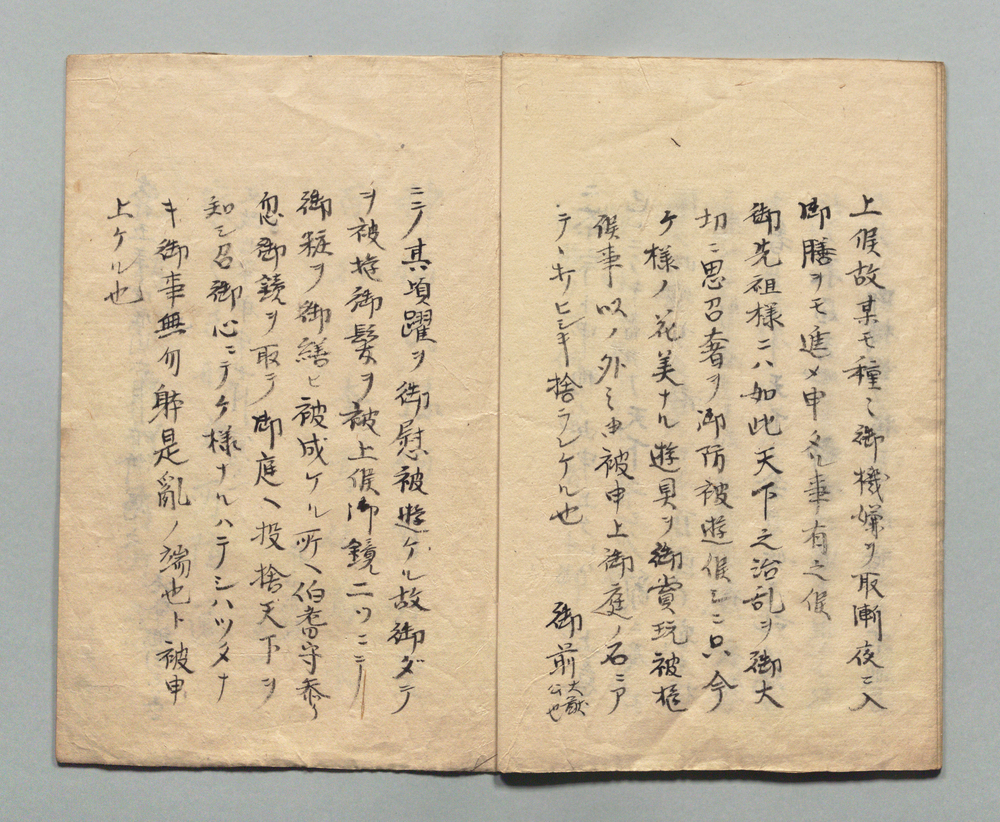 上候故某モ種々御機嫌ヲ取漸夜ニ入
御膳ヲモ進メ申タル事有之候
御先祖様ニハ如此天下之治乱ヲ御大
切ニ思召奢ヲ御防被遊候ニ只今
ケ様ノ花美ナル遊具ヲ御賞玩被遊
候事以ノ外之由被申上御庭ノ石ニア
テヽキヒシキ捨ラレケル也
御前大猷公也
ニテ其頃躍ヲ御慰被遊ケル故御ダテ
ヲ被遊御髪ヲ被上候御鏡二ツニテ
御粧ヲ御繕ヒ被成ケル所ヘ伯耆守参り
忽御鏡ヲ取テ御庭ヘ投捨天下ヲ
知シ召御心ニテケ様ナルハテシハツタナ
キ御事無勿躰是亂ノ端也ト被申
上ケル也